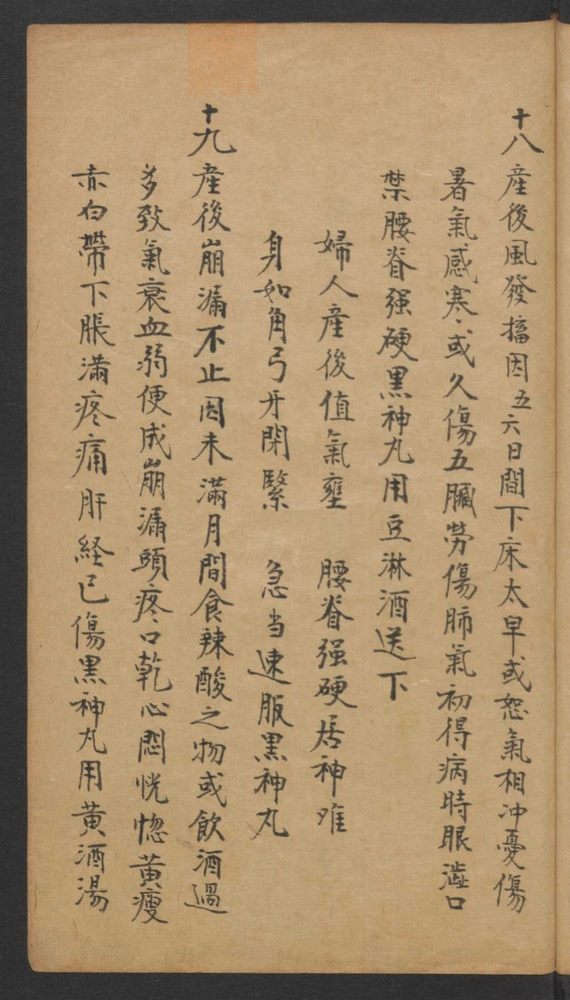 十八產後風發搐因五六日間下床太早或怒氣相沖憂傷
暑氣感寒或久傷五臟勞傷肺氣初得病時眼澁口
禁腰脊强硬黑神丸用豆淋酒送下
婦人產後值氣壅 腰脊强硬居神难
身如角弓牙閉緊 急当速服黑神丸
十九產後崩漏不止因未滿月間食辣酸之物或飲酒過
多致氣衰血弱便成崩漏頭疼口乾心悶恍惚黄瘦
赤白帶下脹滿疼痛肝経已傷黒神丸用黄酒湯